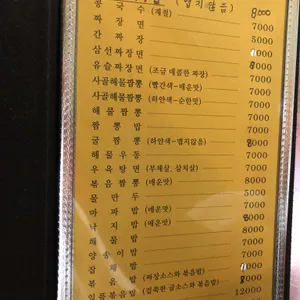 (맵지않음)
콩 국 수 (계절) 8000
짜 장 면 7000
간 짜 장 5000
삼선짜장면 7000
유슬짜장면 (조금 매콤한 짜장) 8000
사골해물짬뽕 (빨간색-매운맛) 7000
사골해물짬뽕 (하얀색-순한맛) 7000
해 물 짬 뽕 7000
짬 뽕 밥 7000
굴 짬 뽕 (하얀색-맵지않음) 8000
해 물 우 동 7000
우 육 탕 면 (부채살, 삼치살) 7000
볶 음 짬 뽕 (매운맛) 8000
물 만 두 5000
마 파 밥 (매운맛) 7000
낙 지 밥 (매운맛) 8000
해 물 밥 8000
양 송 이 밥 7000
잡 채 밥 7000
볶 음 밥 (짜장소스와 볶음밥) 7000
일품볶음밥 (걸쭉한 굴소스와 볶음밥) 8000
12000